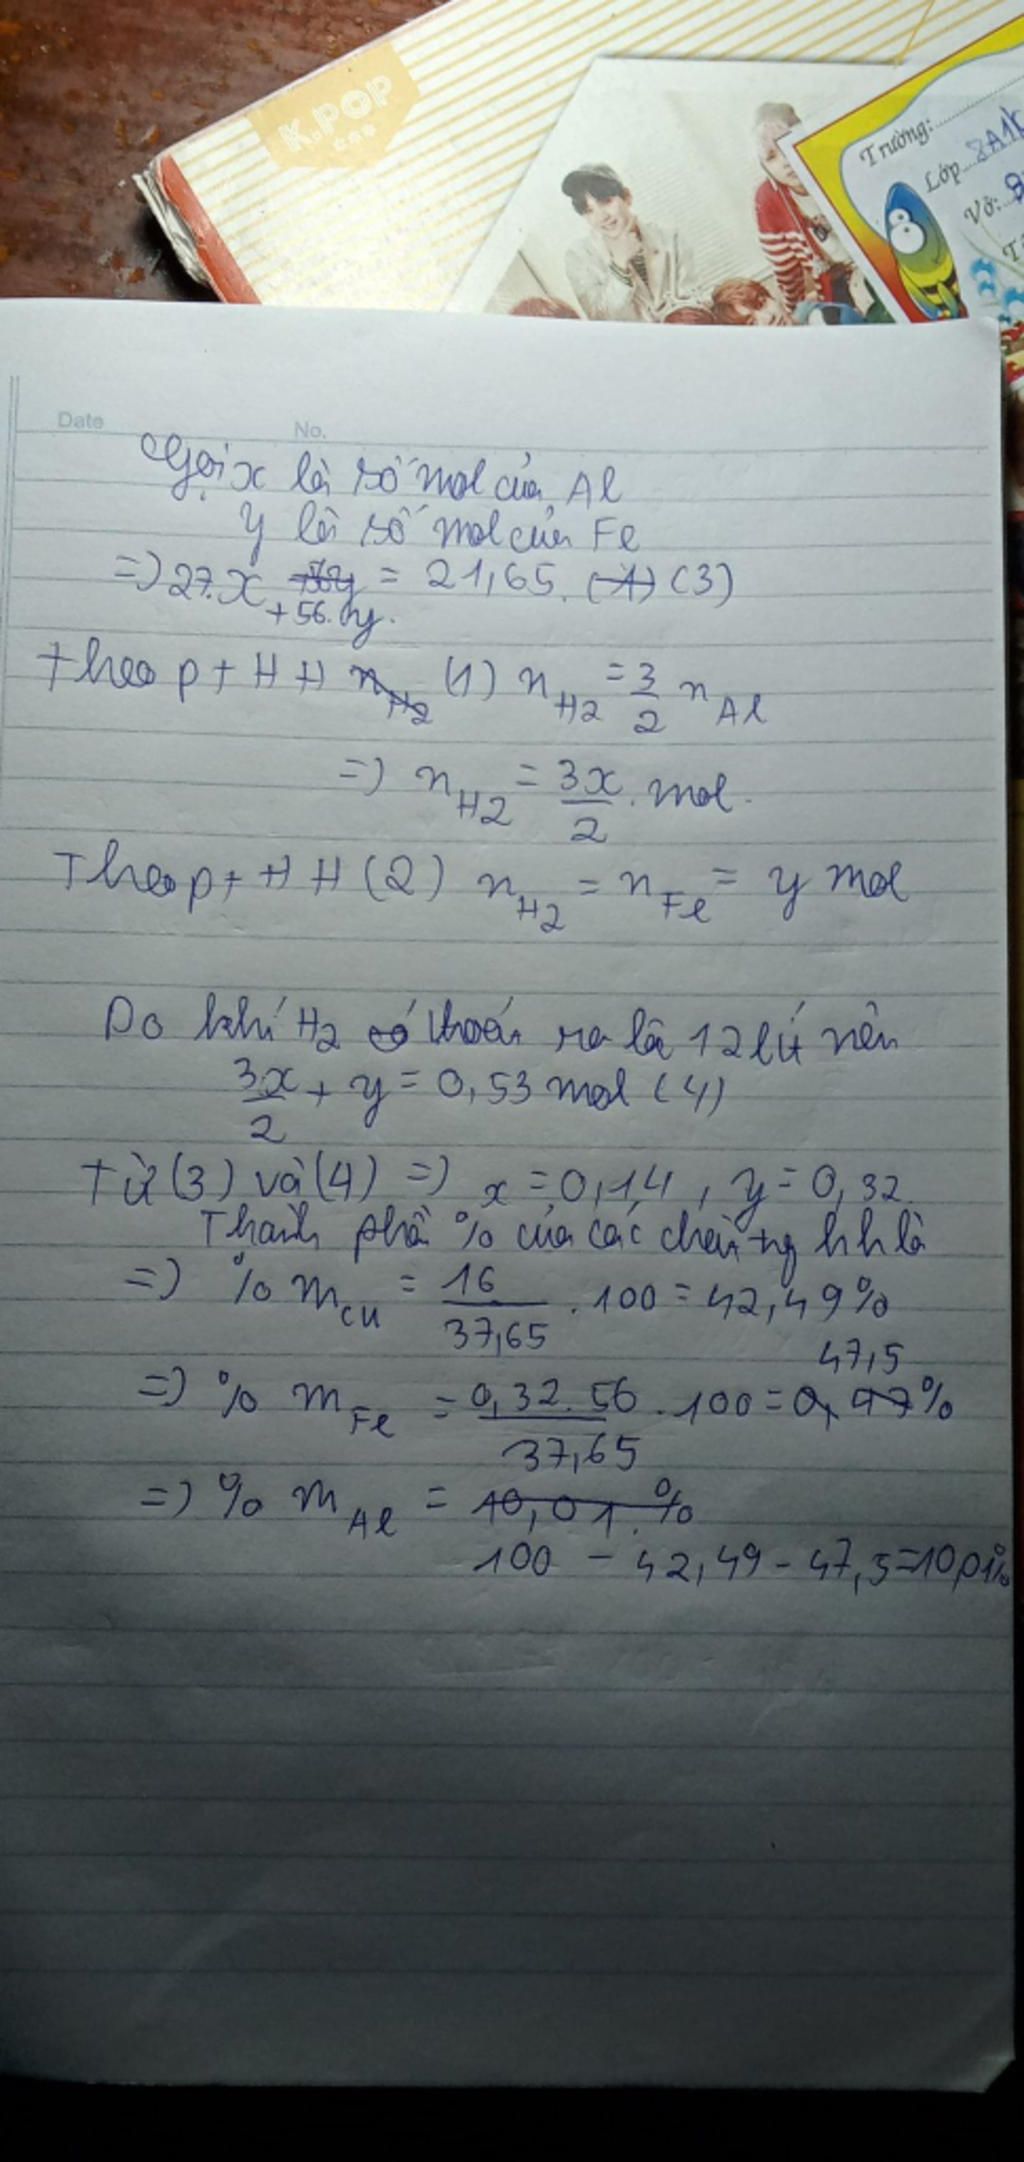 K.POP
Trường:
Lớp 8A1
Vở:
Date
No.
Gọi x là số mol của Al
y là số mol của Fe
=> 27.x + 56.y = 21,65. (3)
Theo ptHH (1) nH2 = 3/2 nAl
=> nH2 = 3x/2 . mol.
Theo ptHH (2) nH2 = nFe = y mol
Do khí H2 thoát ra là 12 lít nên
3x/2 + y = 0,53 mol (4)
Từ (3) và (4) => x = 0,14, y = 0,32.
Thành phần % của các chất trg hh là
=> % mCu = 16/37,65 . 100 = 42,49%
=> % mFe = 0,32.56/37,65 . 100 = 47,5%
=> % mAl =
100 - 42,49 - 47,5 = 10,01%